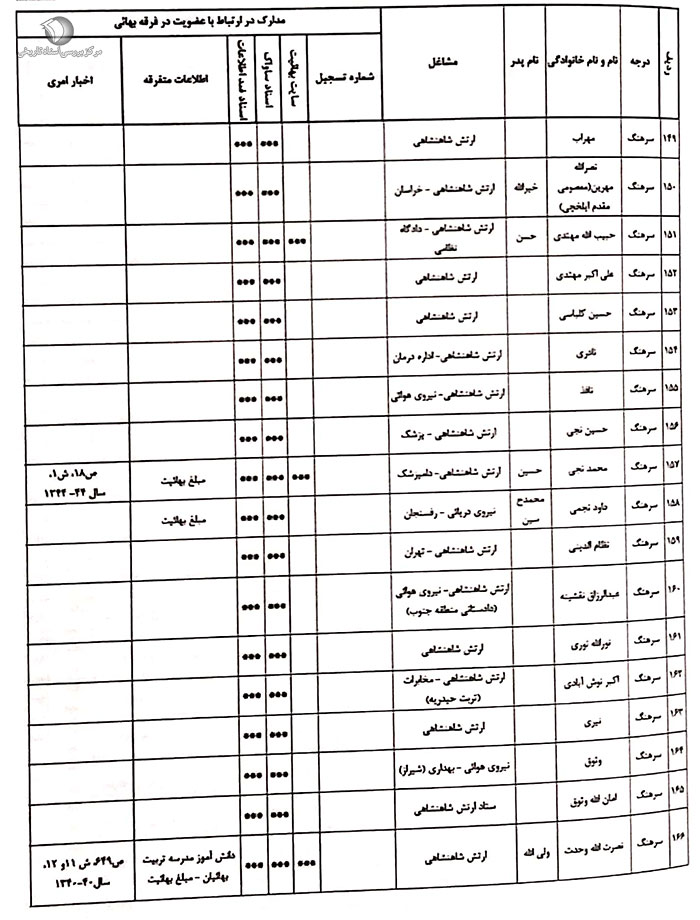 مرکز بررسی اسناد تاریخی
مدارک در ارتباط با عضویت در فرقه بهائی
ردیف درجه نام و نام خانوادگی نام پدر مشاغل شماره تسجیل سایت بهائیت اسناد ساواک اسناد ضد اطلاعات اطلاعات متفرقه اخبار امری
۱۴۹ سرهنگ مهراب ارتش شاهنشاهی ●●● ●●●
۱۵۰ سرهنگ نصرالله مهرین(معصومی مقدم ایلخچی) خیرالله ارتش شاهنشاهی - خراسان ●●● ●●●
۱۵۱ سرهنگ حبیب الله مهتدی حسن ارتش شاهنشاهی - دادگاه نظامی ●●● ●●● ●●●
۱۵۲ سرهنگ علی اکبر مهتدی ارتش شاهنشاهی ●●● ●●●
۱۵۳ سرهنگ حسین کلباسی ارتش شاهنشاهی ●●● ●●●
۱۵۴ سرهنگ نادری ارتش شاهنشاهی- اداره درمان ●●● ●●●
۱۵۵ سرهنگ نافذ ارتش شاهنشاهی- نیروی هوائی ●●● ●●●
۱۵۶ سرهنگ حسین نجی ارتش شاهنشاهی - پزشک ●●● ●●●
۱۵۷ سرهنگ محمد نحی حسین ارتش شاهنشاهی- دامپزشک ●●● ●●● ●●● مبلغ بهائیت ص۱۸، ش۱، سال ۴۴- ۱۳۴۴
۱۵۸ سرهنگ داود نجمی محمدح سین نیروی دریائی - رفسنجان ●●● ●●● مبلغ بهائیت
۱۵۹ سرهنگ نظام الدینی ارتش شاهنشاهی - تهران ●●● ●●●
۱۶۰ سرهنگ عبدالرزاق نقشینه ارتش شاهنشاهی- نیروی هوائی (دادستانی منطقه جنوب) ●●● ●●●
۱۶۱ سرهنگ نورالله نوری ارتش شاهنشاهی ●●● ●●●
۱۶۲ سرهنگ اکبر نوش آبادی ارتش شاهنشاهی - مخابرات (تربت حیدریه) ●●● ●●●
۱۶۳ سرهنگ نیری ارتش شاهنشاهی ●●● ●●●
۱۶۴ سرهنگ وثوق نیروی هوائی - بهداری (شیراز) ●●● ●●●
۱۶۵ سرهنگ امان الله وثوق ستاد ارتش شاهنشاهی ●●● ●●●
۱۶۶ سرهنگ نصرت الله وحدت ولی الله ارتش شاهنشاهی ●●● ●●● ●●● دانش آموز مدرسه تربیت بهائیان - مبلغ بهائیت ص۶۴۹، ش ۱۱و ۱۲، سال۴۰-۱۳۴۰